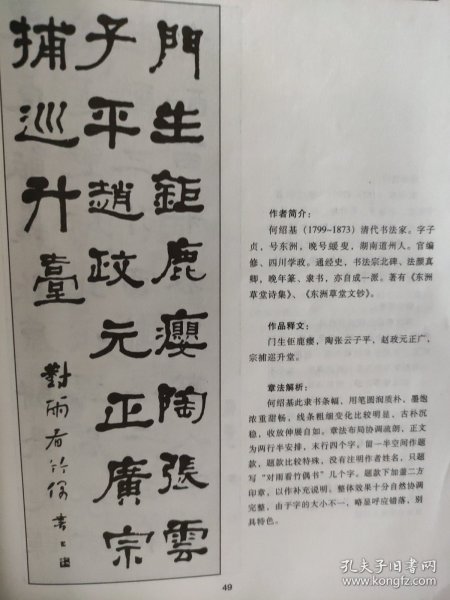 門生鉅鹿癭陶張雲
子平趙政元正廣宗
捕巡升臺
對雨看竹偶書
作者简介：
何绍基（1799~1873）清代书法家。字子
贞，号东洲，晚号蝯叟，湖南道州人。官编
修、四川学政。通经史，书法宗北碑、法颜真
卿，晚年篆、隶书，亦自成一派。著有《东洲
草堂诗集》、《东洲草堂文钞》。
作品释文：
门生钜鹿瘿，陶张云子平，赵政元正广，
宗捕巡升堂。
章法解析：
何绍基此隶书条幅，用笔圆润质朴、墨饱
浓重甜畅，线条粗细变化比较明显，古朴沉
稳，收放伸展自如。章法布局协调疏朗，正文
为两行半安排，末行四个字。留一半空间作题
款，题款比较特殊，没有注明作者姓名，只题
写“对雨看竹偶书”几个字。题款下加盖二方
印章，以作补充说明。整体效果十分自然协调
完整，由于字的大小不一，略显呼应错落，别
具特色。
49
孔夫子旧书网
www.kongfz.com